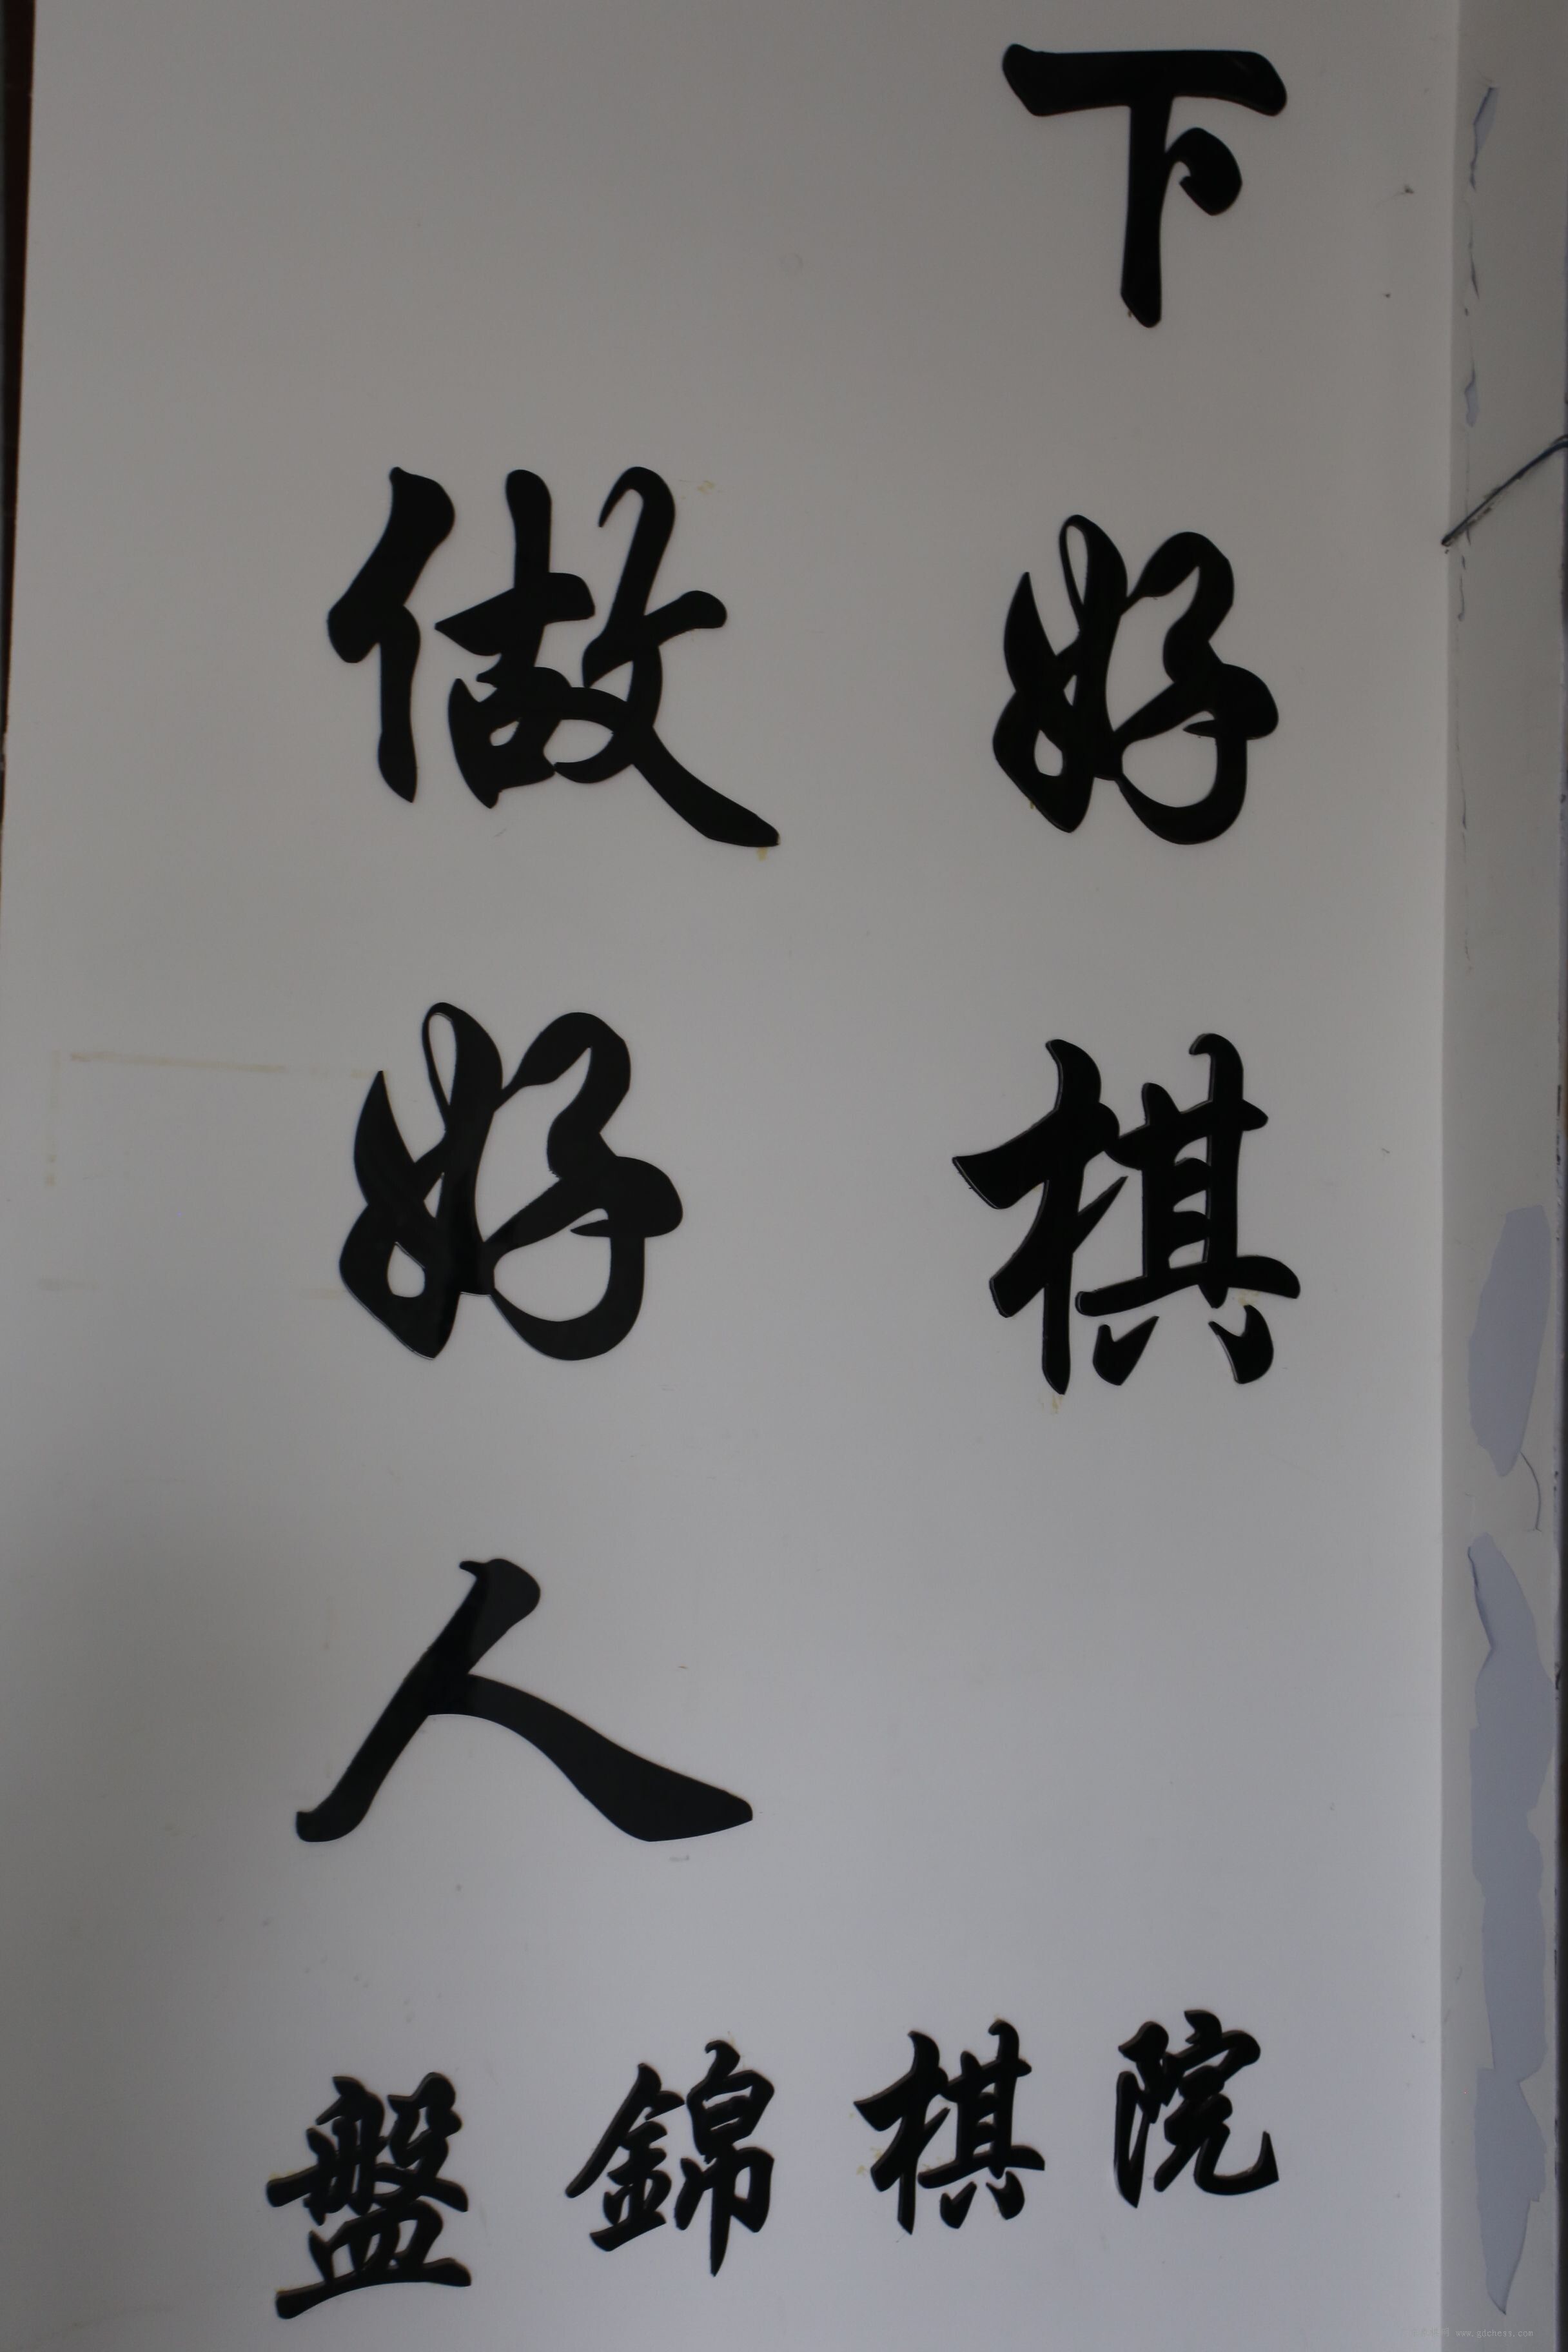 下好棋
做好人
盤錦棋院
www.gdchess.com